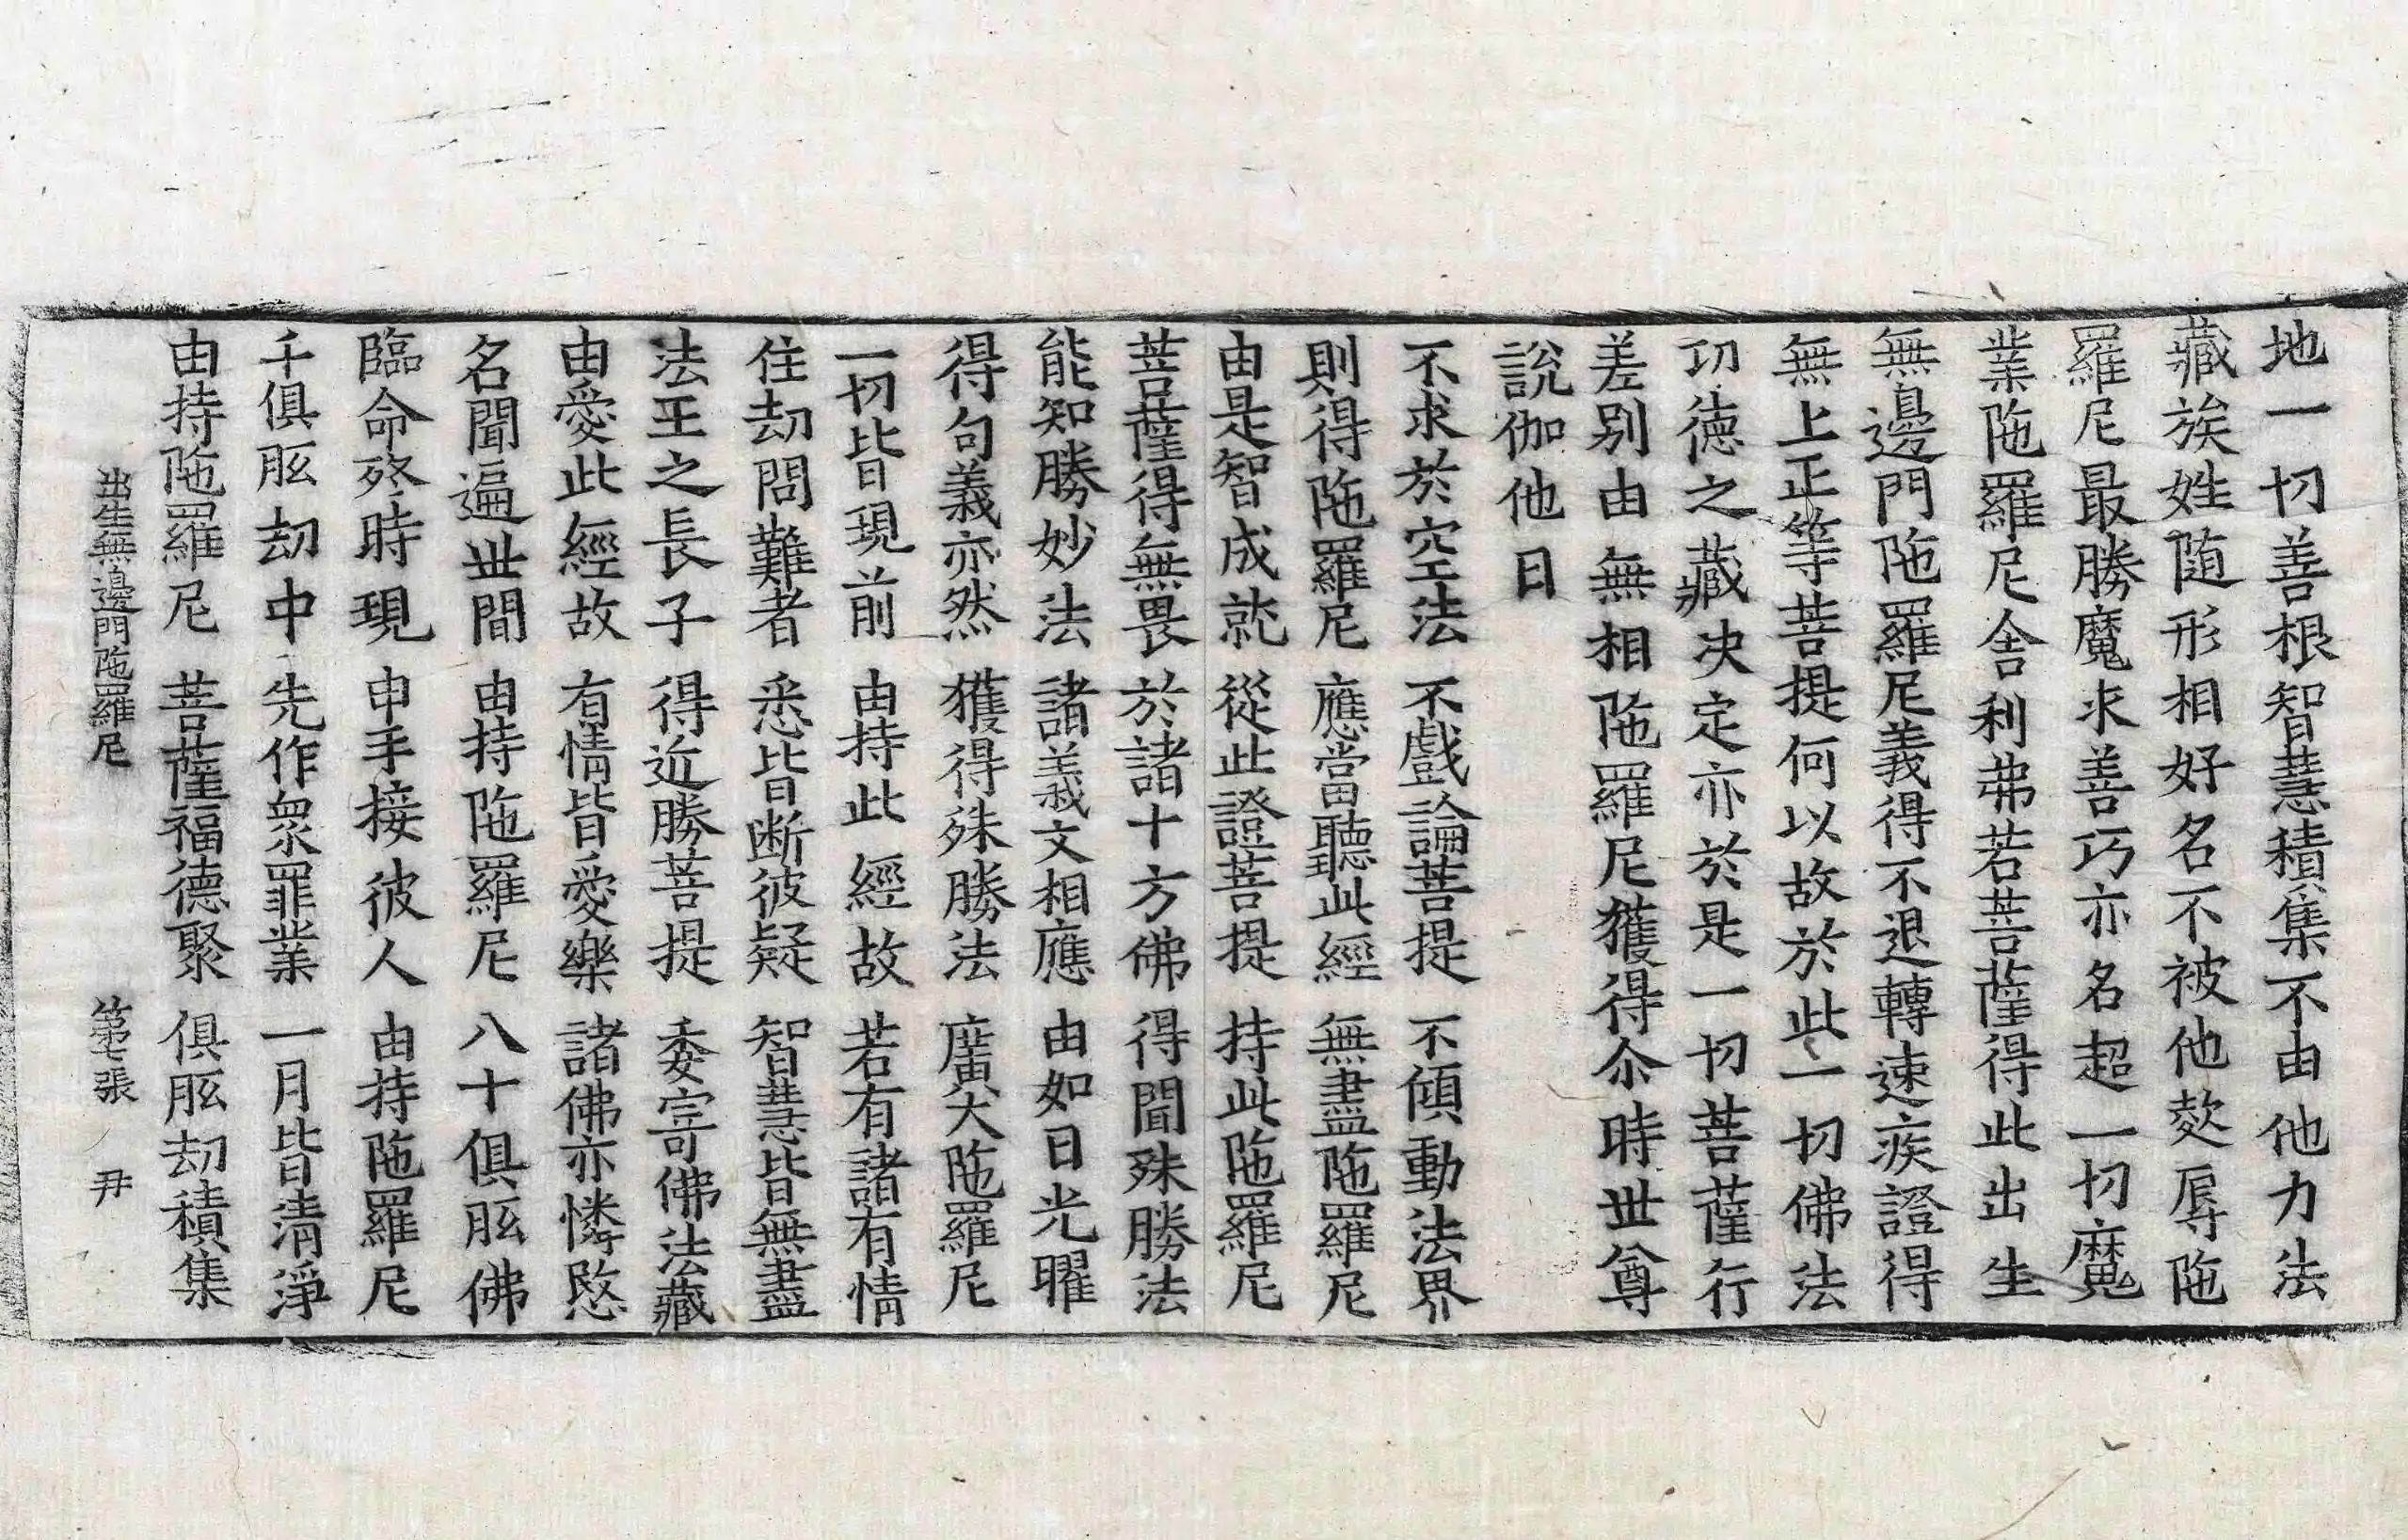 地一切善根智慧積集不由他力法
藏族姓随形相好名不被他欺辱陁
羅尼最勝魔求善巧亦名超一切魔
業陁羅尼舎利弗若菩薩得此出生
無邊門陁羅尼義得不退轉速疾證得
無上正等菩提何以故於此一切佛法
功德之藏决定亦於是一切菩薩行
差别由無相陁羅尼獲得尒時世尊
說伽他曰
不求於空法　不戲論菩提　不傾動法界
則得陁羅尼　應當聽此經　無盡陁羅尼
由是智成就　從此證菩提　持此陁羅尼
菩薩得無畏　於諸十方佛　得聞殊勝法
能知勝妙法　諸義文相應　由如日光曜
得句義亦然　獲得殊勝法　廣大陁羅尼
一切皆現前　由持此經故　若有諸有情
住劫問難者　悉皆断彼疑　智慧皆無盡
法王之長子　得近勝菩提　委寄佛法藏
由愛此經故　有情皆愛樂　諸佛亦憐愍
名聞遍世間　由持陁羅尼　八十俱胝佛
臨命終時現　申手接彼人　由持陁羅尼
千俱胝劫中　先作衆罪業　一月皆清淨
由持陁羅尼　菩薩福德聚　俱胝劫積集
出生無邊門陁羅尼　第七張　尹